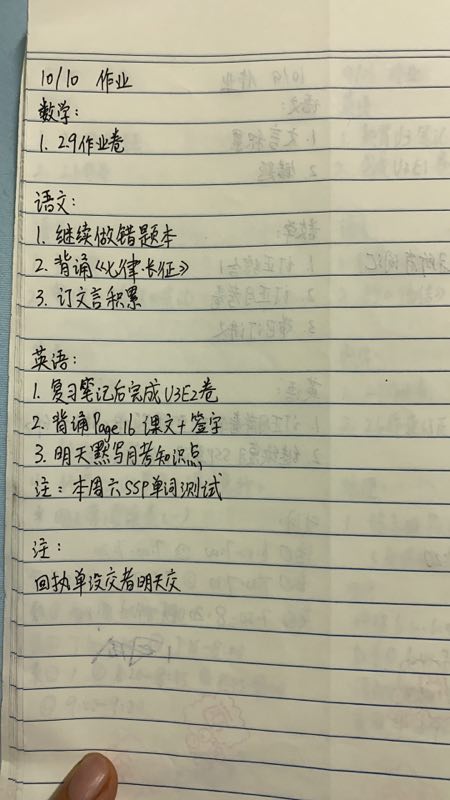 10/10 作业
数学：
1. 2.9作业卷
语文：
1. 继续做错题本
2. 背诵《七律·长征》
3. 订文言积累
英语：
1. 复习笔记后完成U3E2卷
2. 背诵Page 16 课文+签字
3. 明天默写月考知识点
注：本周六SSP单词测试
注：
回执单没交者明天交